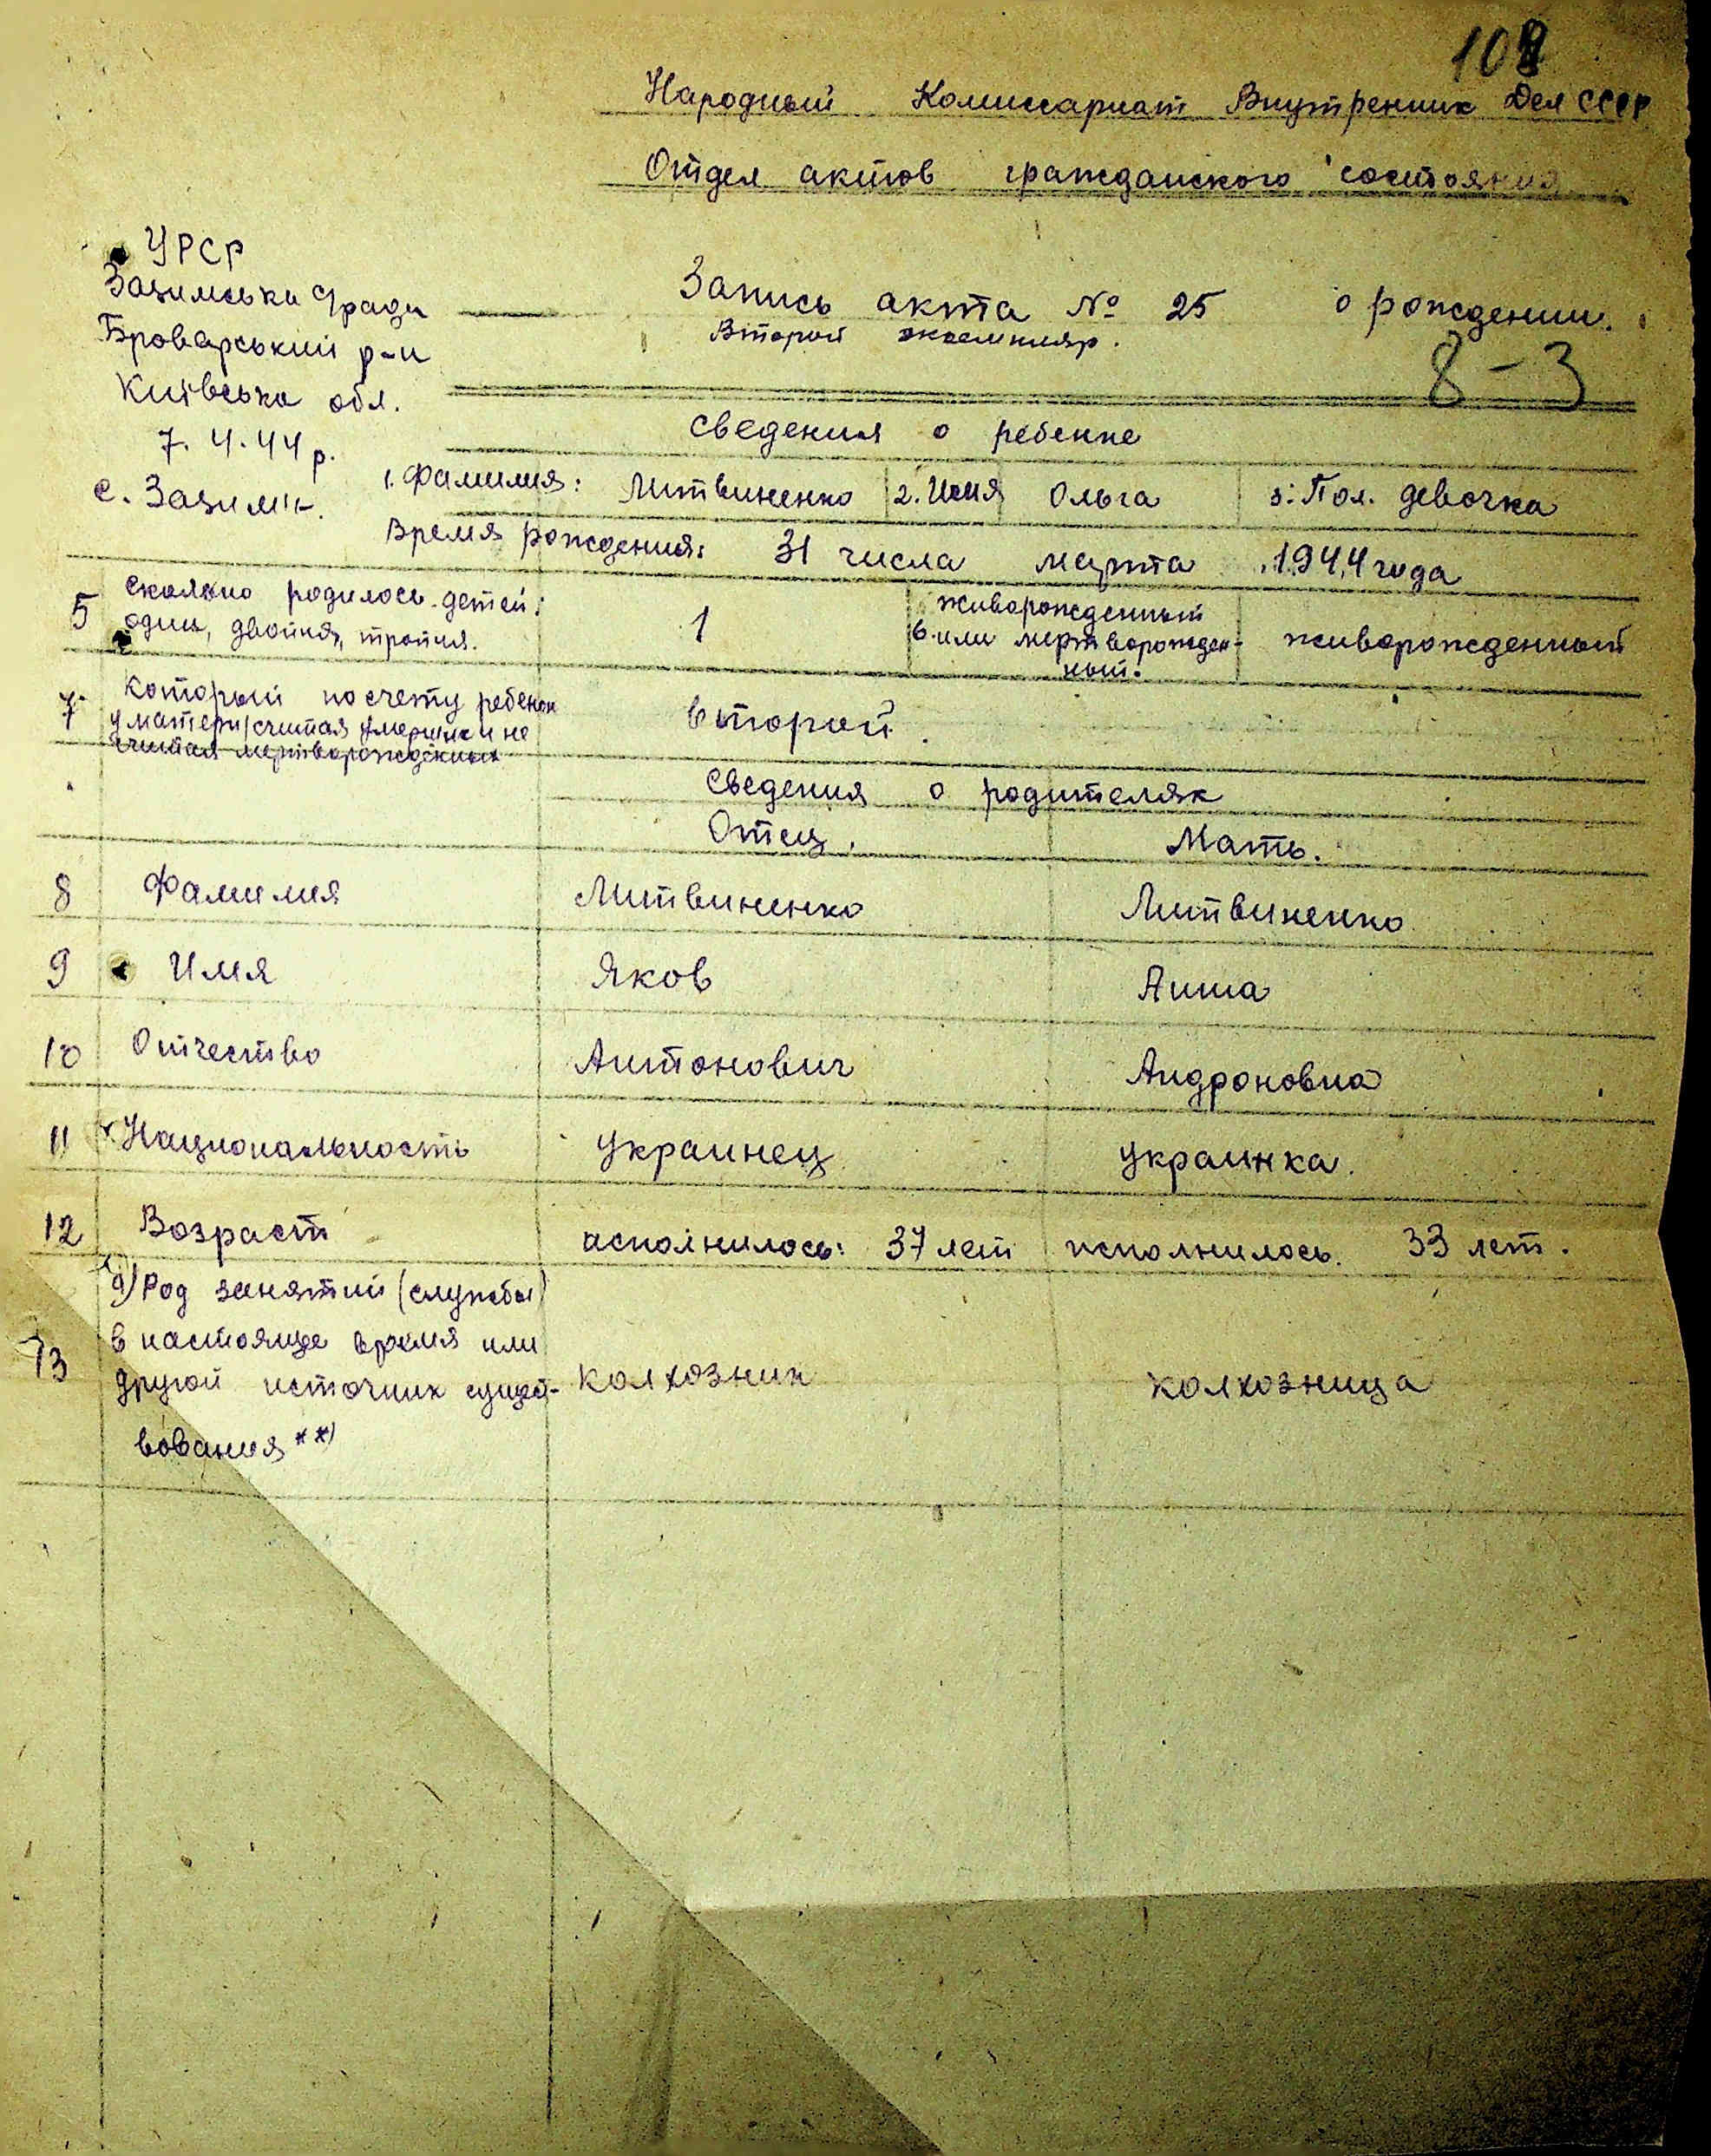 Народный Комиссариат Внутренних Дел СССР
Отдел актов гражданского состояния
УРСР
Зазимська с/рада
Броварський р-н
Київська обл.
7.4.44 р.
с. Зазим'є.
Запись акта № 25 о рождении.
Второй экземпляр.
8-3
Сведения о ребенке
1. Фамилия: Литвиненко 2. Имя Ольга 3. Пол. девочка
Время рождения: 31 числа марта 1944 года
5 Сколько родилось детей: 1 живорожденный
один, двойня, тройня. 6. или мертворожден- живорожденный
ный.
7. Который по счету ребенок второй.
у матери/считая умерших и не
считая мертворожденных
Сведения о родителях
Отец. Мать.
8 Фамилия Литвиненко Литвиненко
9 Имя Яков Анна
10 Отчество Антонович Андроновна
11 Национальность украинец украинка.
12 Возраст исполнилось: 37 лет исполнилось. 33 лет.
а) Род занятий (службы)
13 в настояще время или
другой источник сущест- колхозник колхозница
вования **)